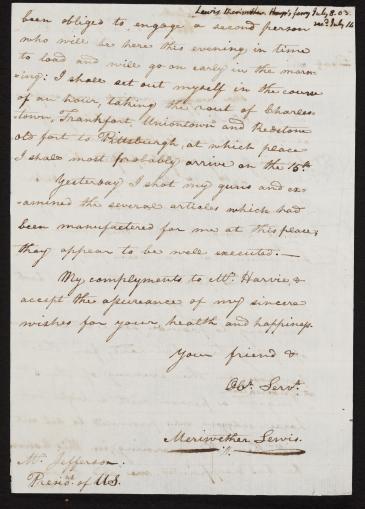 Lewis Meriwether Harper's ferry July 8. 03.
recd July 16
been obliged to engage a second person
who will be here this evening in time
to load and will go on early in the morn-
-ing: I shall set out myself in the course
of an hour, taking the rout of Charles-
town, Frankfort, Uniontown and Redstone
old fort to Pittsburgh, at which place
I shall most probably arrive on the 15th
Yesterday I shot my guns and ex-
-amined the several articles which had
been manufactured for me at this place;
they appear to be well executed.—
My complyments to Mr. Harvie, &
accept the assureance of my sincere
wishes for your health and happiness.
Your friend &
Obt. Servt.
Meriwether Lewis.
Mr. Jefferson.
Presidt. of U.S.